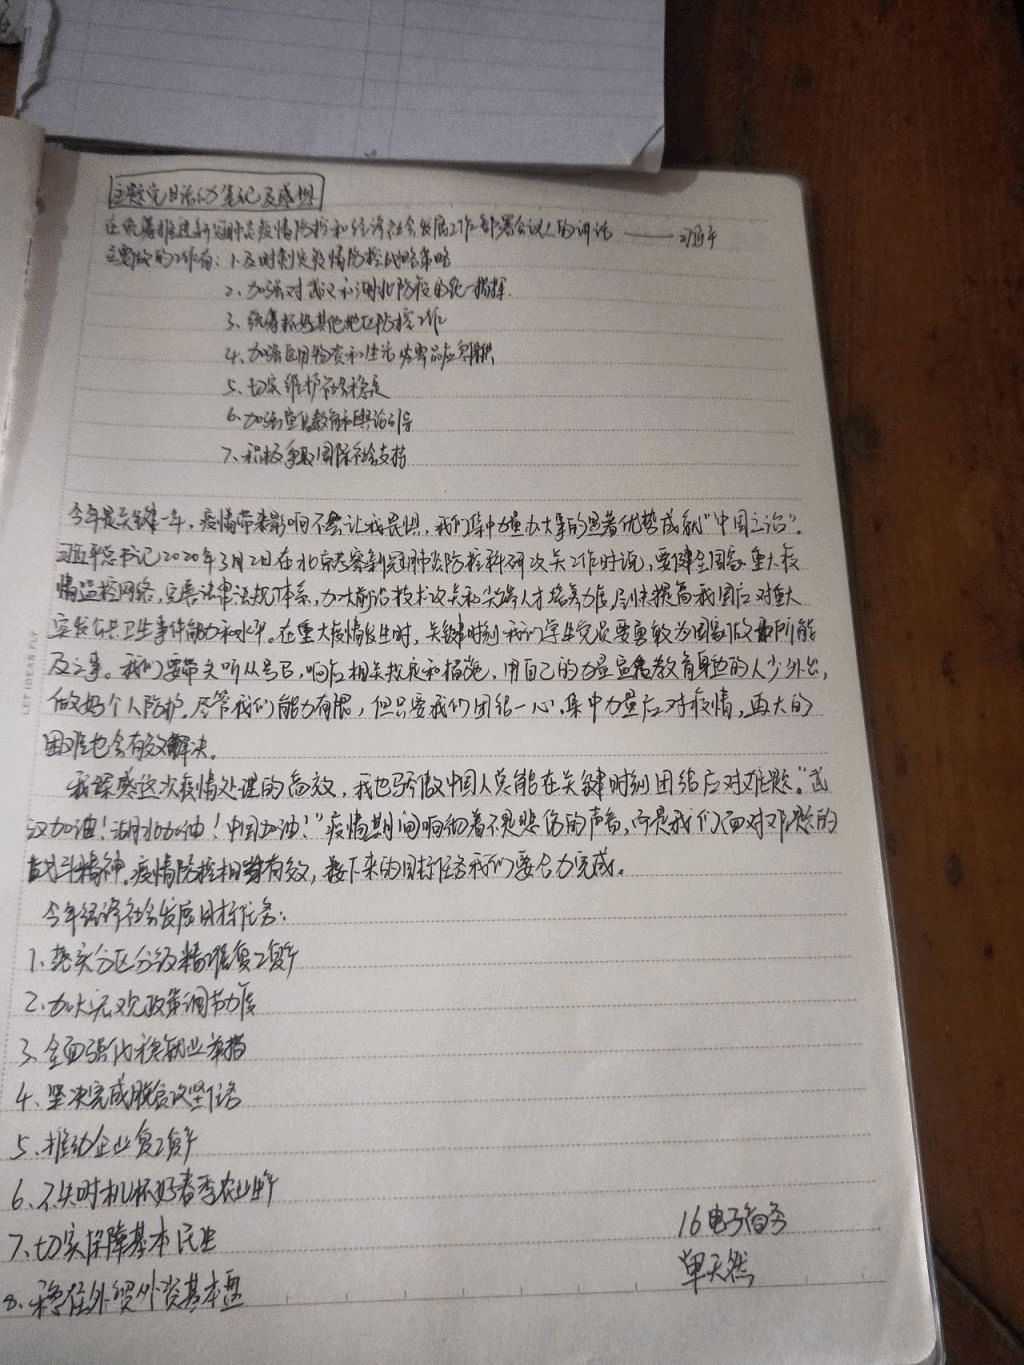 主题党日活动笔记及感想
在统筹推进新冠肺炎疫情防控和经济社会发展工作部署会议上的讲话 —— 习近平
主要做的工作有：1、及时制定疫情防控战略策略
2、加强对武汉和湖北防疫的统一指挥
3、统筹抓好其他地区防控工作
4、加强医用物资和生活必需品应急保供
5、切实维护社会稳定
6、加强宣传教育和舆论引导
7、积极争取国际社会支持
今年是关键一年，疫情带来影响不会让我畏惧，我们集中力量办大事的显著优势成就“中国之治”。
习近平总书记2020年3月2日在北京考察新冠肺炎防控科研攻关工作时说，要健全国家重大疫
情监控网络，完善法律法规体系，加大前沿技术攻关和尖端人才培养力度，尽快提高我国应对重大
突发公共卫生事件能力和水平。在重大疫情发生时，关键时刻我们学生党员要勇敢为国家做最所能
及之事。我们要带头听从号召，响应相关规定和措施，用自己的力量宣传教育身边的人少外出，
做好个人防护。尽管我们能力有限，但只要我们团结一心，集中力量应对疫情，再大的
困难也会有效解决。
我深感这次疫情处理的高效，我也骄傲中国人总能在关键时刻团结应对难题。“武
汉加油！湖北加油！中国加油！”疫情期间响彻着不是悲伤的声音，而是我们面对难题的
战斗精神。疫情防控相当有效，接下来的目标任务我们要合力完成。
今年经济社会发展目标任务：
1、落实分区分级精准复工复产
2、加大宏观政策调节力度
3、全面强化稳就业举措
4、坚决完成脱贫攻坚任务
5、推动企业复工复产
6、不失时机抓好春季农业生产
7、切实保障基本民生
8、稳住外贸外资基本盘
16电子商务
单天然
LET IDEAS FLY